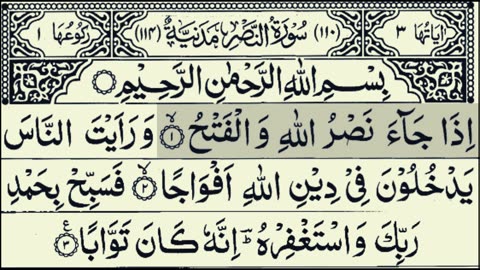 اٰیَاتُهَا ٣ (١١٠) سُوْرَةُ النَّصْرِ مَدَنِیَّةٌ (١١٤) رُكُوْعُهَا ١
بِسْمِ اللهِ الرَّحْمٰنِ الرَّحِیْمِ
اِذَا جَآءَ نَصْرُ اللهِ وَالْفَتْحُ ۙ١ وَرَاَیْتَ النَّاسَ
یَدْخُلُوْنَ فِیْ دِیْنِ اللهِ اَفْوَاجًا ۙ٢ فَسَبِّحْ بِحَمْدِ
رَبِّكَ وَاسْتَغْفِرْهُ ؕ اِنَّهٗ كَانَ تَوَّابًا ٣ ع